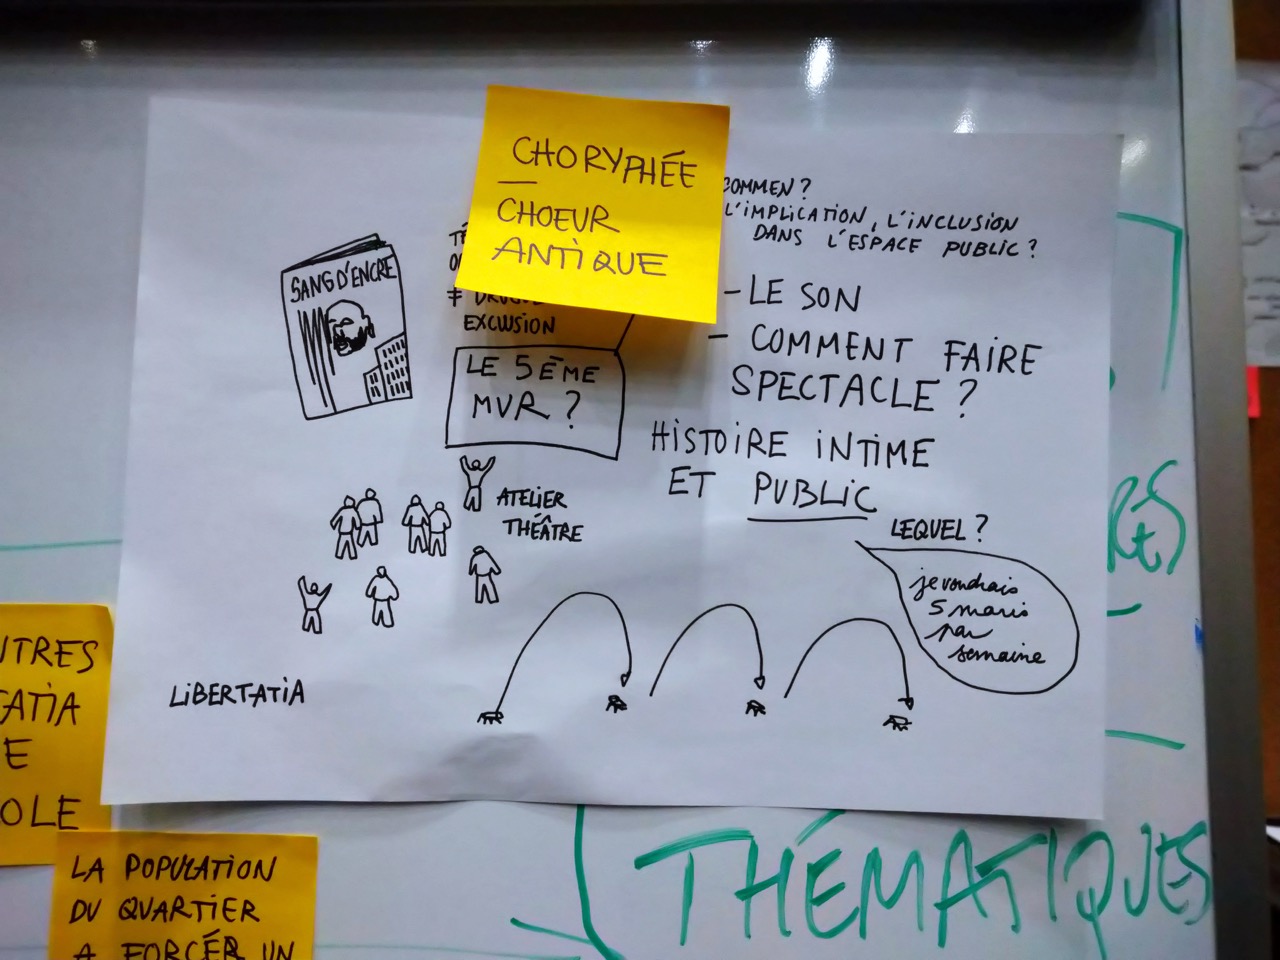 CHORYPHÉE
—
CHOEUR
ANTIQUE
COMMEN?
L'IMPLICATION, L'INCLUSION
DANS L'ESPACE PUBLIC?
SANG D'ENCRE
≠
EXCLUSION
LE 5ÈME
MUR?
- LE SON
- COMMENT FAIRE
SPECTACLE?
HISTOIRE INTIME
ET PUBLIC
LEQUEL?
je voudrais
5 maris
par
semaine
ATELIER
THÉÂTRE
LIBERTATIA
OLE
LA POPULATION
DU QUARTIER
A FORCÉR UN
THÉMATIQUES